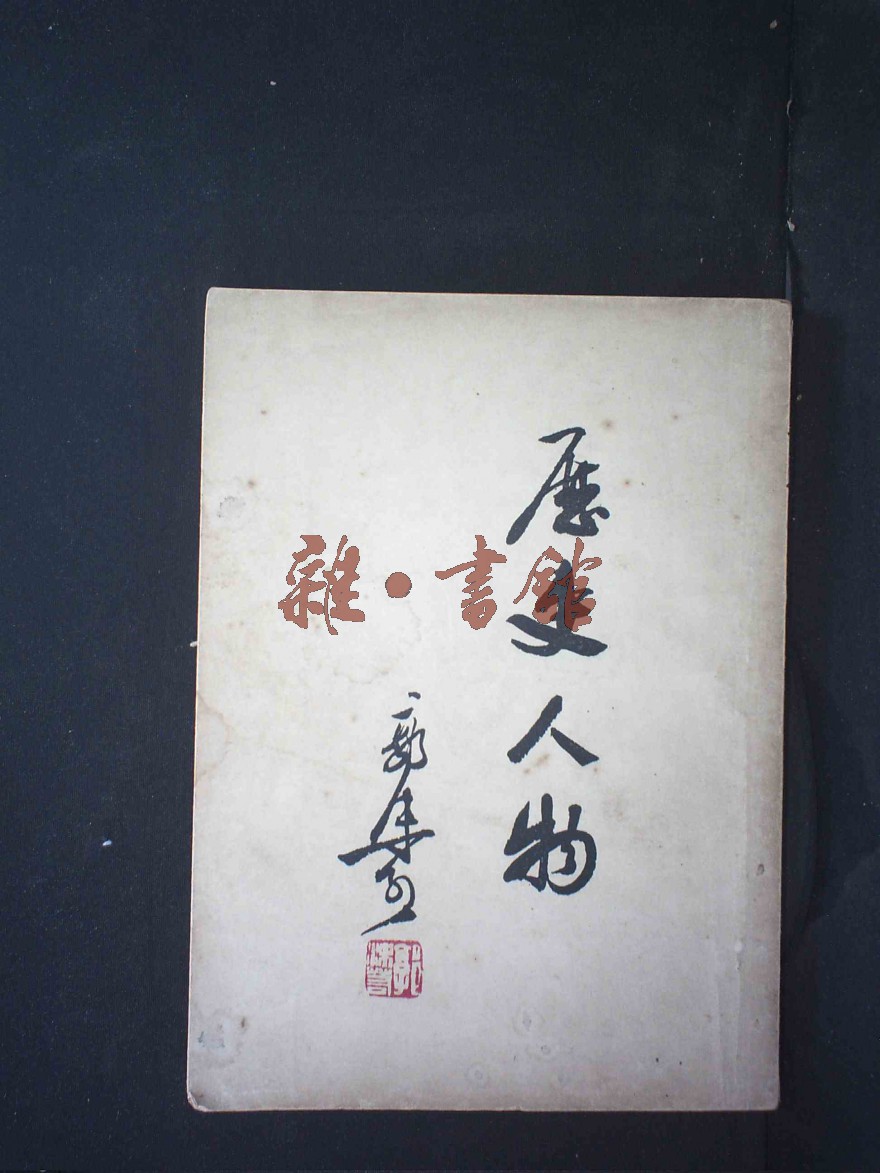 歷史人物
郭沫若
郭沫若
雜·書館